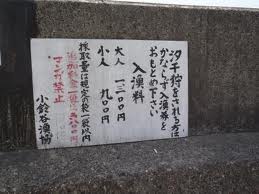 汐干狩をされる方は
かならず入漁券を
おもとめ下さい
入漁料
大人 一三〇〇円
小人 九〇〇円
採取量は規定の袋一袋以内
追加料金一袋
マンガ禁止
小鈴谷漁協